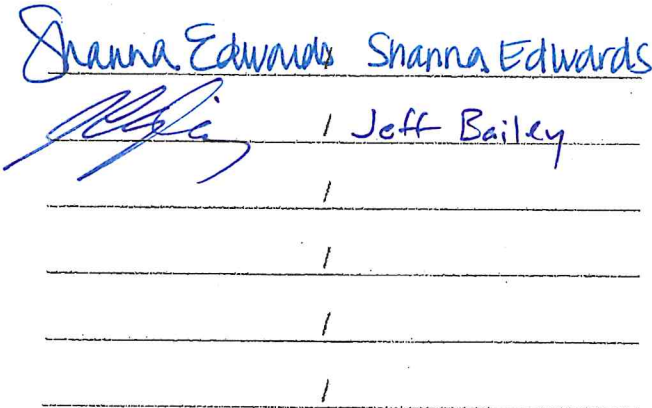 Shanna Edwards / Shanna Edwards
/ Jeff Bailey
/
/
/
/